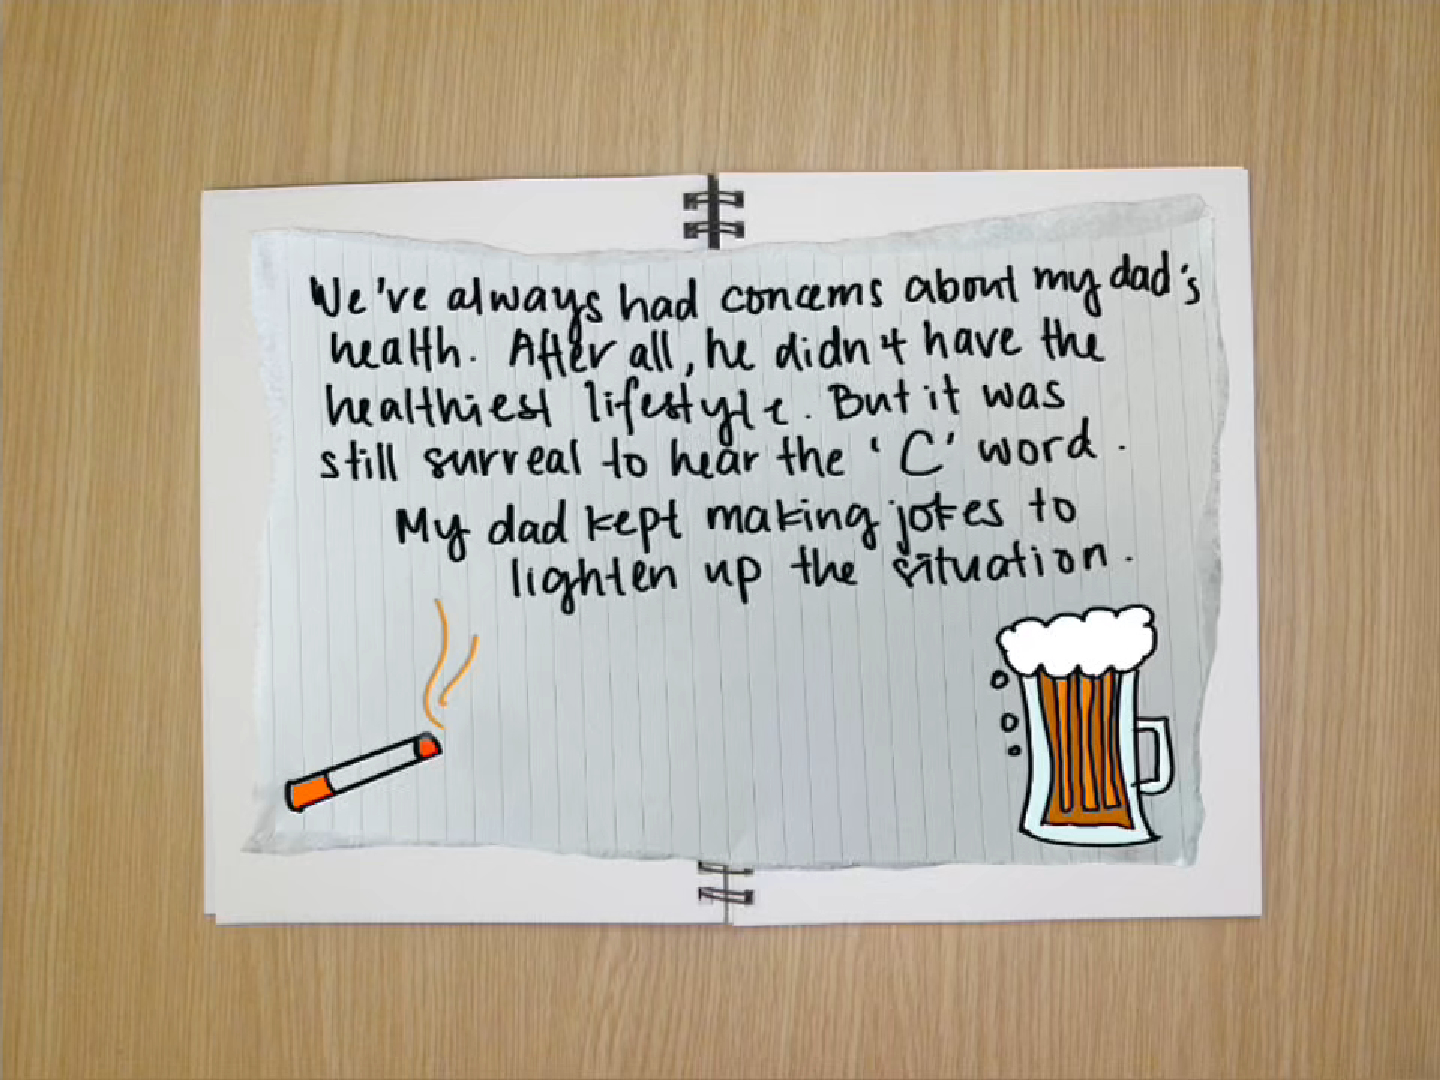 We've always had concerns about my dad's
health. After all, he didn't have the
healthiest lifestyle. But it was
still surreal to hear the 'C' word.
My dad kept making jokes to
lighten up the situation.